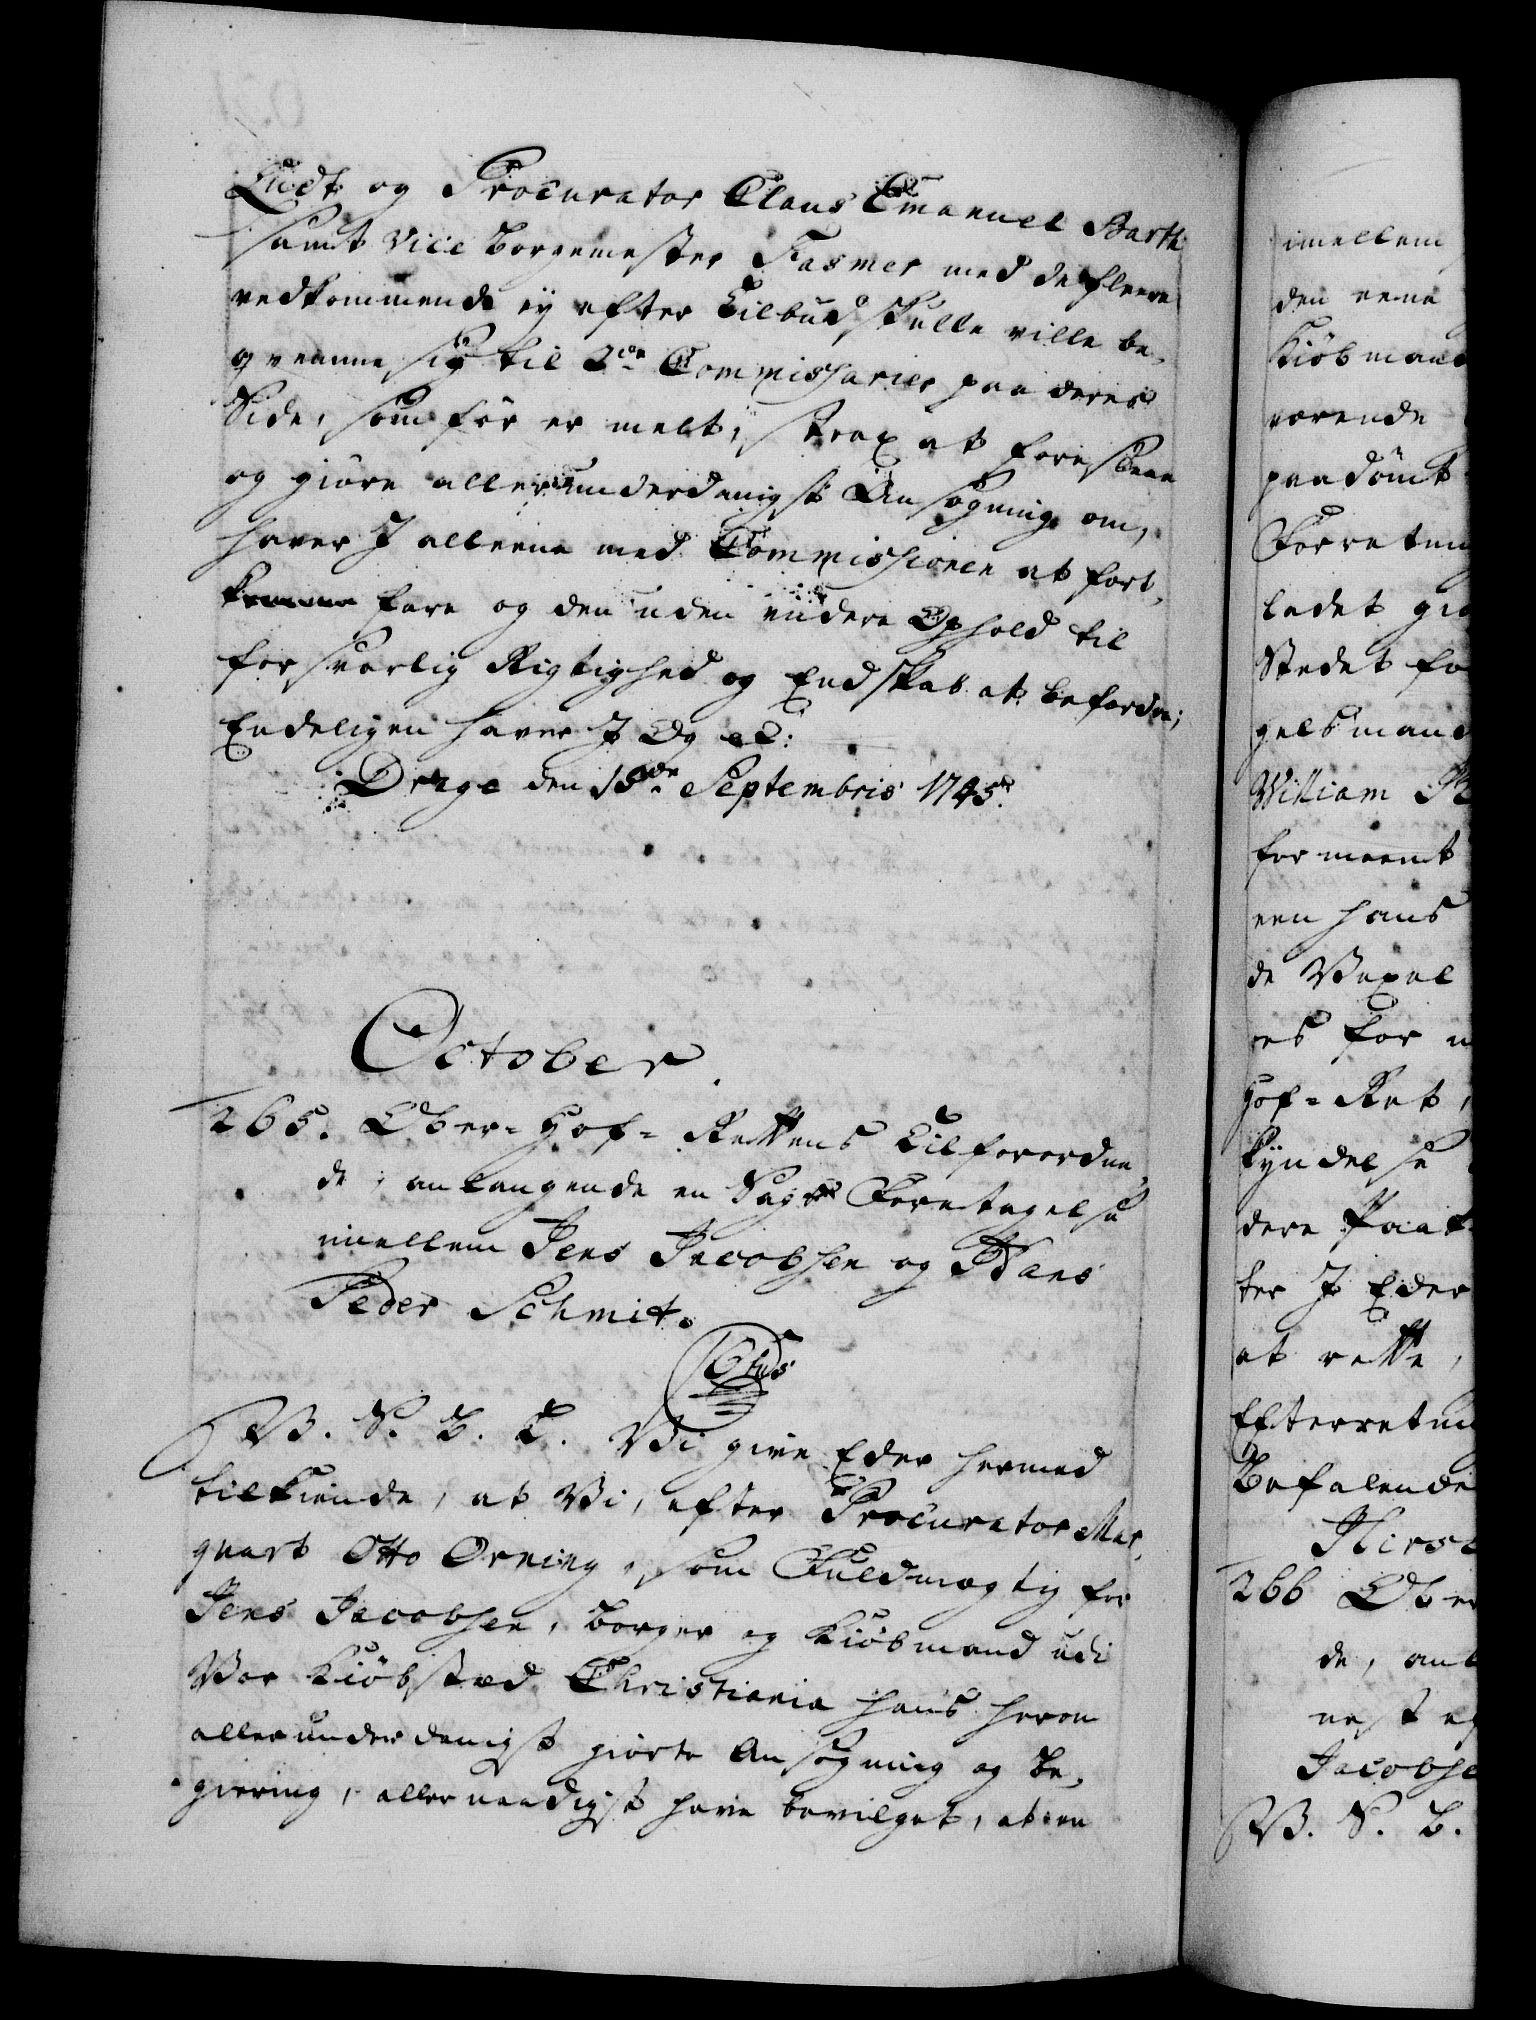 Ludt og Procurator Claus Emanuel Barth
samt Vice Borgemester Fasmer med de fleere
vedkommende ey efter Tilbud skulle ville be-
qvemme sig til 2de Commissarier paa deres
Side, som før er melt, strax at foreslaae
og giøre allerunderdanigst Ansøgning om,
haver I alleene med Commissionen at fort-
fare og den uden videre Ophold til
forsvarlig Rigtighed og Endskab at befordre;
Endeligen haver I Og etc:
Drage den 15de Septembris 1745.
October.
265. Ober-Hof-Rettens Tilforordne-
de, anlangende en Sags Foretagelse
imellem Jens Jacobsen og Hans
Peder Schmit.
Ctus
V. S. B. T. Vi give Eder hermed
tilkiende, at Vi, efter Procurator Mar-
qvart Otto Orning, som Fuldmægtig for
Jens Jacobsen, Borger og Kiøbmand udi
Vor Kiøbstæd Christiania hans herom
allerunderdanigst giorte Ansøgning og Be-
giering, allernaadigst have bevilget, at en
imellem
den eene
Kiøbmand
værende
paadømt
Forretn
ladet gi
Stedet fo
gelsmand
William
formeent
een hans
de Vexel
res for
Hof-Ret,
kyndelse
dere Paat
ter I Eder
at rette,
Efterretn
Befalende
Hirs
266 Ober
de, anl
nest
Jacobse
V. S. B.